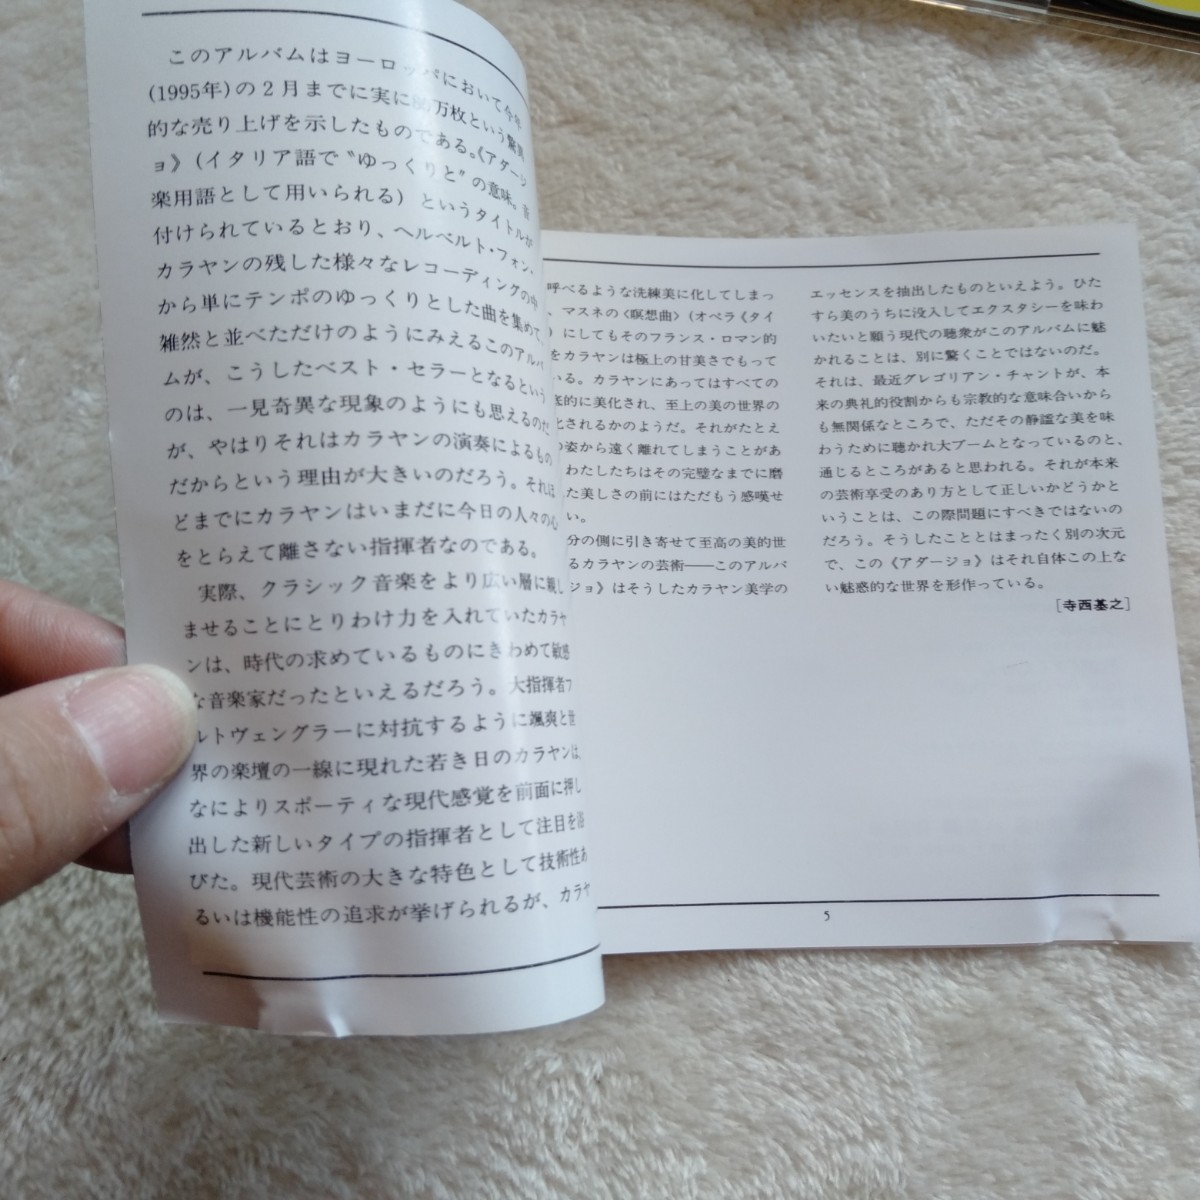 このアルバムはヨーロッパにおいて今年
(1995年)の2月までに実に 万枚という驚異
的な売り上げを示したものである。《アダージ
ョ》(イタリア語で〝ゆっくりと〟の意味。音
楽用語として用いられる) というタイトルが
付けられているとおり、ヘルベルト・フォン・
カラヤンの残した様々なレコーディングの中
から単にテンポのゆっくりとした曲を集めて、
雑然と並べただけのようにみえるこのアルバ
ムが、こうしたベスト・セラーとなるという
のは、一見奇異な現象のようにも思えるのだ
が、やはりそれはカラヤンの演奏によるもの
だからという理由が大きいのだろう。それほ
どまでにカラヤンはいまだに今日の人々の心
をとらえて離さない指揮者なのである。
実際、クラシック音楽をより広い層に親し
ませることにとりわけ力を入れていたカラヤ
ンは、時代の求めているものにきわめて敏感
な音楽家だったといえるだろう。大指揮者フ
ルトヴェングラーに対抗するように颯爽と世
界の楽壇の一線に現れた若き日のカラヤンは、
なによりスポーティな現代感覚を前面に押し
出した新しいタイプの指揮者として注目を浴
びた。現代芸術の大きな特色として技術性あ
るいは機能性の追求が挙げられるが、カラヤ
呼べるような洗練美に化してしまっ
、マスネの〈瞑想曲〉(オペラ《タイ
)にしてもそのフランス・ロマン的
をカラヤンは極上の甘美さでもって
いる。カラヤンにあってはすべての
底的に美化され、至上の美の世界の
化されるかのようだ。それがたとえ
の姿から遠く離れてしまうことがあ
わたしたちはその完璧なまでに磨
た美しさの前にはただもう感嘆せ
い。
分の側に引き寄せて至高の美的世
るカラヤンの芸術——このアルバ
ジョ》はそうしたカラヤン美学の
エッセンスを抽出したものといえよう。ひた
すら美のうちに没入してエクスタシーを味わ
いたいと願う現代の聴衆がこのアルバムに魅
かれることは、別に驚くことではないのだ。
それは、最近グレゴリアン・チャントが、本
来の典礼的役割からも宗教的な意味合いから
も無関係なところで、ただその静謐な美を味
わうために聴かれ大ブームとなっているのと、
通じるところがあると思われる。それが本来
の芸術享受のあり方として正しいかどうかと
いうことは、この際問題にすべきではないの
だろう。そうしたこととはまったく別の次元
で、この《アダージョ》はそれ自体この上な
い魅惑的な世界を形作っている。
[寺西基之]
5